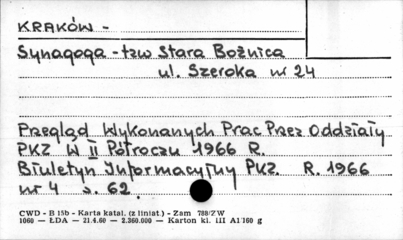 KRAKÓW -
Synagoga - tzw Stara Bożnica
ul. Szeroka nr 24
Przegląd Wykonanych Prac Przez Oddziały
PKZ W II Półroczu 1966 R.
Biuletyn Informacyjny PKZ. R. 1966
nr 4 s. 62.
CWD - B 15b - Karta katal. (z liniat.) - Zam 788/ZW
1060 — ŁDA — 21.4.60 — 2.360.000 — Karton kl. III A1 160 g